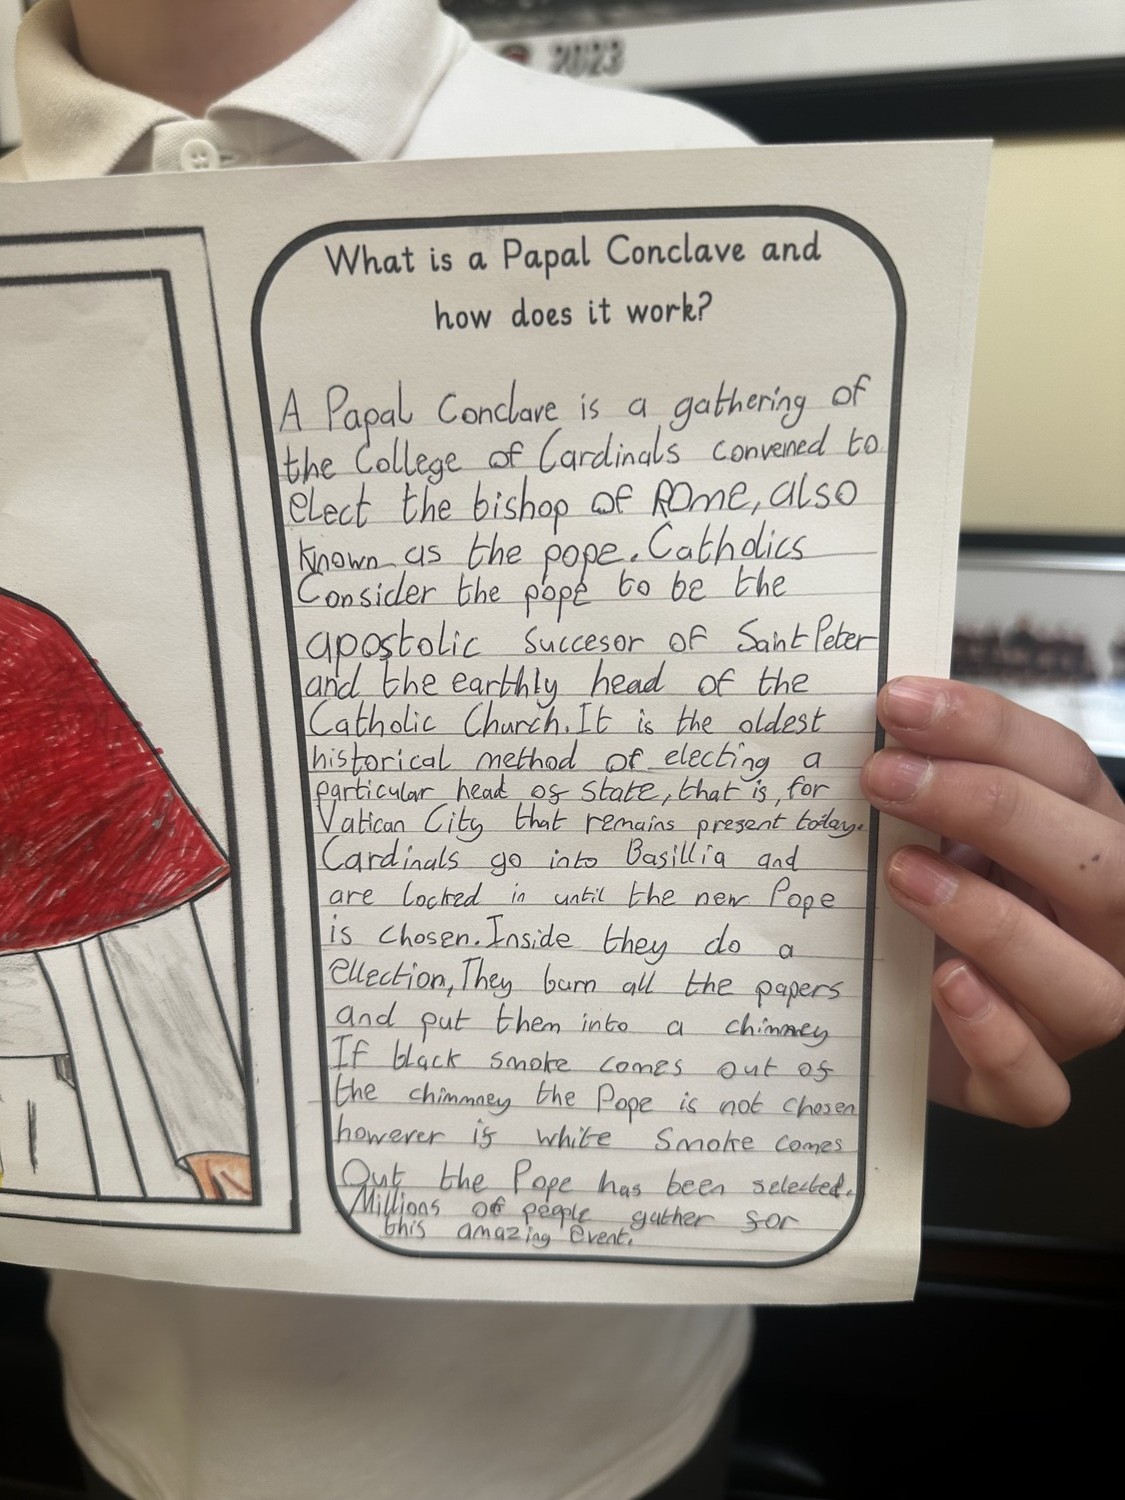 2023
What is a Papal Conclave and
how does it work?
A Papal Conclave is a gathering of
the College of Cardinals convened to
elect the bishop of Rome, also
known as the pope. Catholics
Consider the pope to be the
apostolic succesor of Saint Peter
and the earthly head of the
Catholic Church. It is the oldest
historical method of electing a
particular head of state, that is, for
Vatican City that remains present today.
Cardinals go into Basillia and
are locked in until the new Pope
is chosen. Inside they do a
ellection, They burn all the papers
and put them into a chimney
If black smoke comes out of
the chimmney the Pope is not chosen
however if white smoke comes
Out the Pope has been selected.
Millions of people gather for
this amazing event.